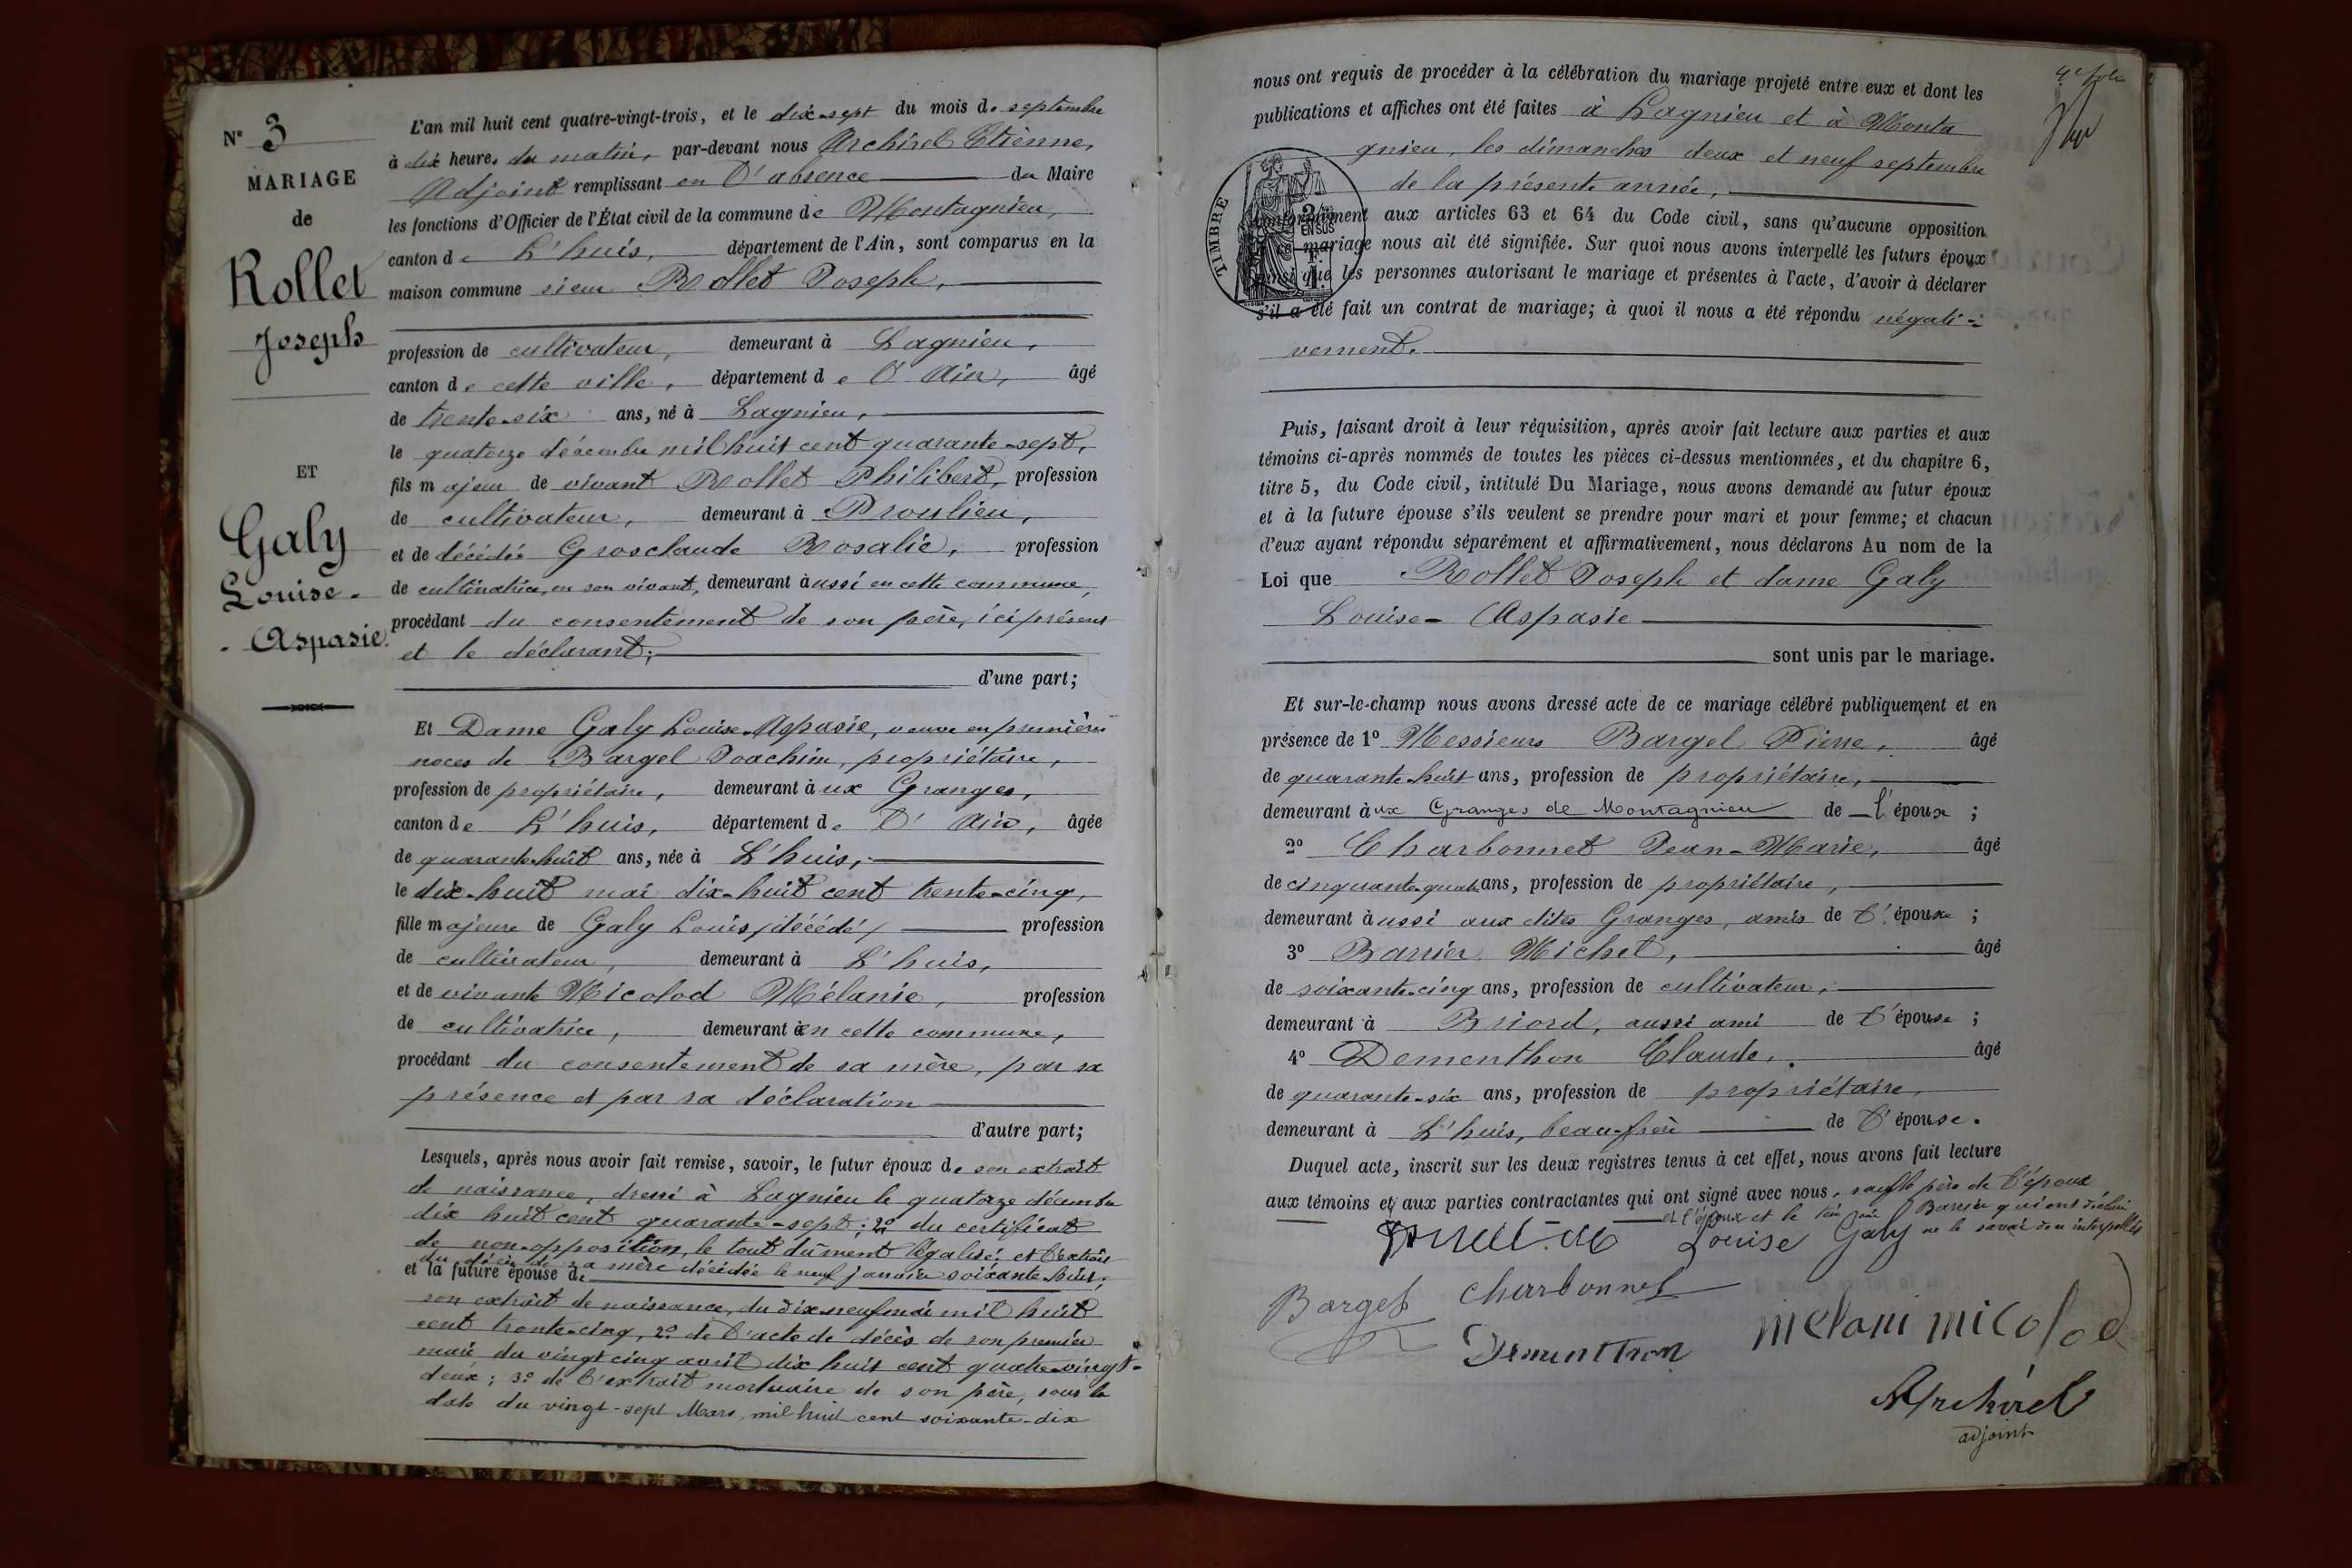 N° 3
MARIAGE
de
Rollet
Joseph
ET
Galy
Louise-
-Aspasie.
L'an mil huit cent quatre-vingt-trois, et le dix-sept du mois de septembre
à dix heures du matin, par-devant nous Archirel Etienne,
Adjoint remplissant en l'absence du Maire
les fonctions d'Officier de l'État civil de la commune de Montagnieu,
canton de L'huis, département de l'Ain, sont comparus en la
maison commune sieur Rollet Joseph,
profession de cultivateur, demeurant à Lagnieu,
canton de cette ville, département de l'Ain, âgé
de trente-six ans, né à Lagnieu,
le quatorze décembre mil huit cent quarante-sept,
fils majeur de vivant Rollet Philibert, profession
de cultivateur, demeurant à Proulieu,
et de décédée Grosclaude Rosalie, profession
de cultivatrice, en son vivant, demeurant aussi en cette commune,
procédant du consentement de son père, ici présent
et le déclarant;
d'une part;
Et Dame Galy Louise-Aspasie, veuve en premières
noces de Bargel Joachim, propriétaire,
profession de propriétaire, demeurant aux Granges,
canton de L'huis, département de l'Ain, âgée
de quarante-huit ans, née à L'huis,
le dix-huit mai dix-huit cent trente-cinq,
fille majeure de Galy Louis (décédé) profession
de cultivateur, demeurant à L'huis,
et de vivante Micolod Mélanie, profession
de cultivatrice, demeurant en cette commune,
procédant du consentement de sa mère, par sa
présence et par sa déclaration
d'autre part;
Lesquels, après nous avoir fait remise, savoir, le futur époux de son extrait
de naissance, dressé à Lagnieu le quatorze décembre
dix huit cent quarante-sept; 2° du certificat
de non-opposition, le tout dûment légalisé; et l'extrait
du décès de sa mère décédée le neuf janvier soixante-huit;
et la future épouse de
son extrait de naissance, du dix-neuf mai mil huit
cent trente-cinq, 2° de l'acte de décès de son premier
mari du vingt cinq avril dix huit cent quatre-vingt-
deux; 3° de l'extrait mortuaire de son père, sous la
date du vingt-sept Mars, mil huit cent soixante-dix
4e folio
nous ont requis de procéder à la célébration du mariage projeté entre eux et dont les
publications et affiches ont été faites à Lagnieu et à Monta
gnieu, les dimanches deux et neuf septembre
de la présente année,
TIMBRE
2/10 EN SUS
1 F.
conformément aux articles 63 et 64 du Code civil, sans qu'aucune opposition
à ce mariage nous ait été signifiée. Sur quoi nous avons interpellé les futurs époux
ainsi que les personnes autorisant le mariage et présentes à l'acte, d'avoir à déclarer
s'il a été fait un contrat de mariage; à quoi il nous a été répondu négati-
vement.
Puis, faisant droit à leur réquisition, après avoir fait lecture aux parties et aux
témoins ci-après nommés de toutes les pièces ci-dessus mentionnées, et du chapitre 6,
titre 5, du Code civil, intitulé Du Mariage, nous avons demandé au futur époux
et à la future épouse s'ils veulent se prendre pour mari et pour femme; et chacun
d'eux ayant répondu séparément et affirmativement, nous déclarons Au nom de la
Loi que Rollet Joseph et dame Galy
Louise-Aspasie
sont unis par le mariage.
Et sur-le-champ nous avons dressé acte de ce mariage célébré publiquement et en
présence de 1° Messieurs Bargel Pierre, âgé
de quarante-huit ans, profession de propriétaire,
demeurant aux Granges de Montagnieu de l'époux;
2° Charbonnet Jean-Marie, âgé
de cinquante-quatre ans, profession de propriétaire,
demeurant aussi aux dites Granges, amis de l'épouse;
3° Barrier Michel, âgé
de soixante-cinq ans, profession de cultivateur,
demeurant à Briord, aussi ami de l'épouse;
4° Dementhon Claude, âgé
de quarante-six ans, profession de propriétaire,
demeurant à L'huis, beau-frère de l'épouse.
Duquel acte, inscrit sur les deux registres tenus à cet effet, nous avons fait lecture
aux témoins et aux parties contractantes qui ont signé avec nous, sauf le père de l'époux
et l'époux et le témoin Barrier qui ont déclaré
ne le savoir de ce interpellés
Louise Galy
Bargel Charbonnet
Dementhon melani micolod
Archirel
adjoint